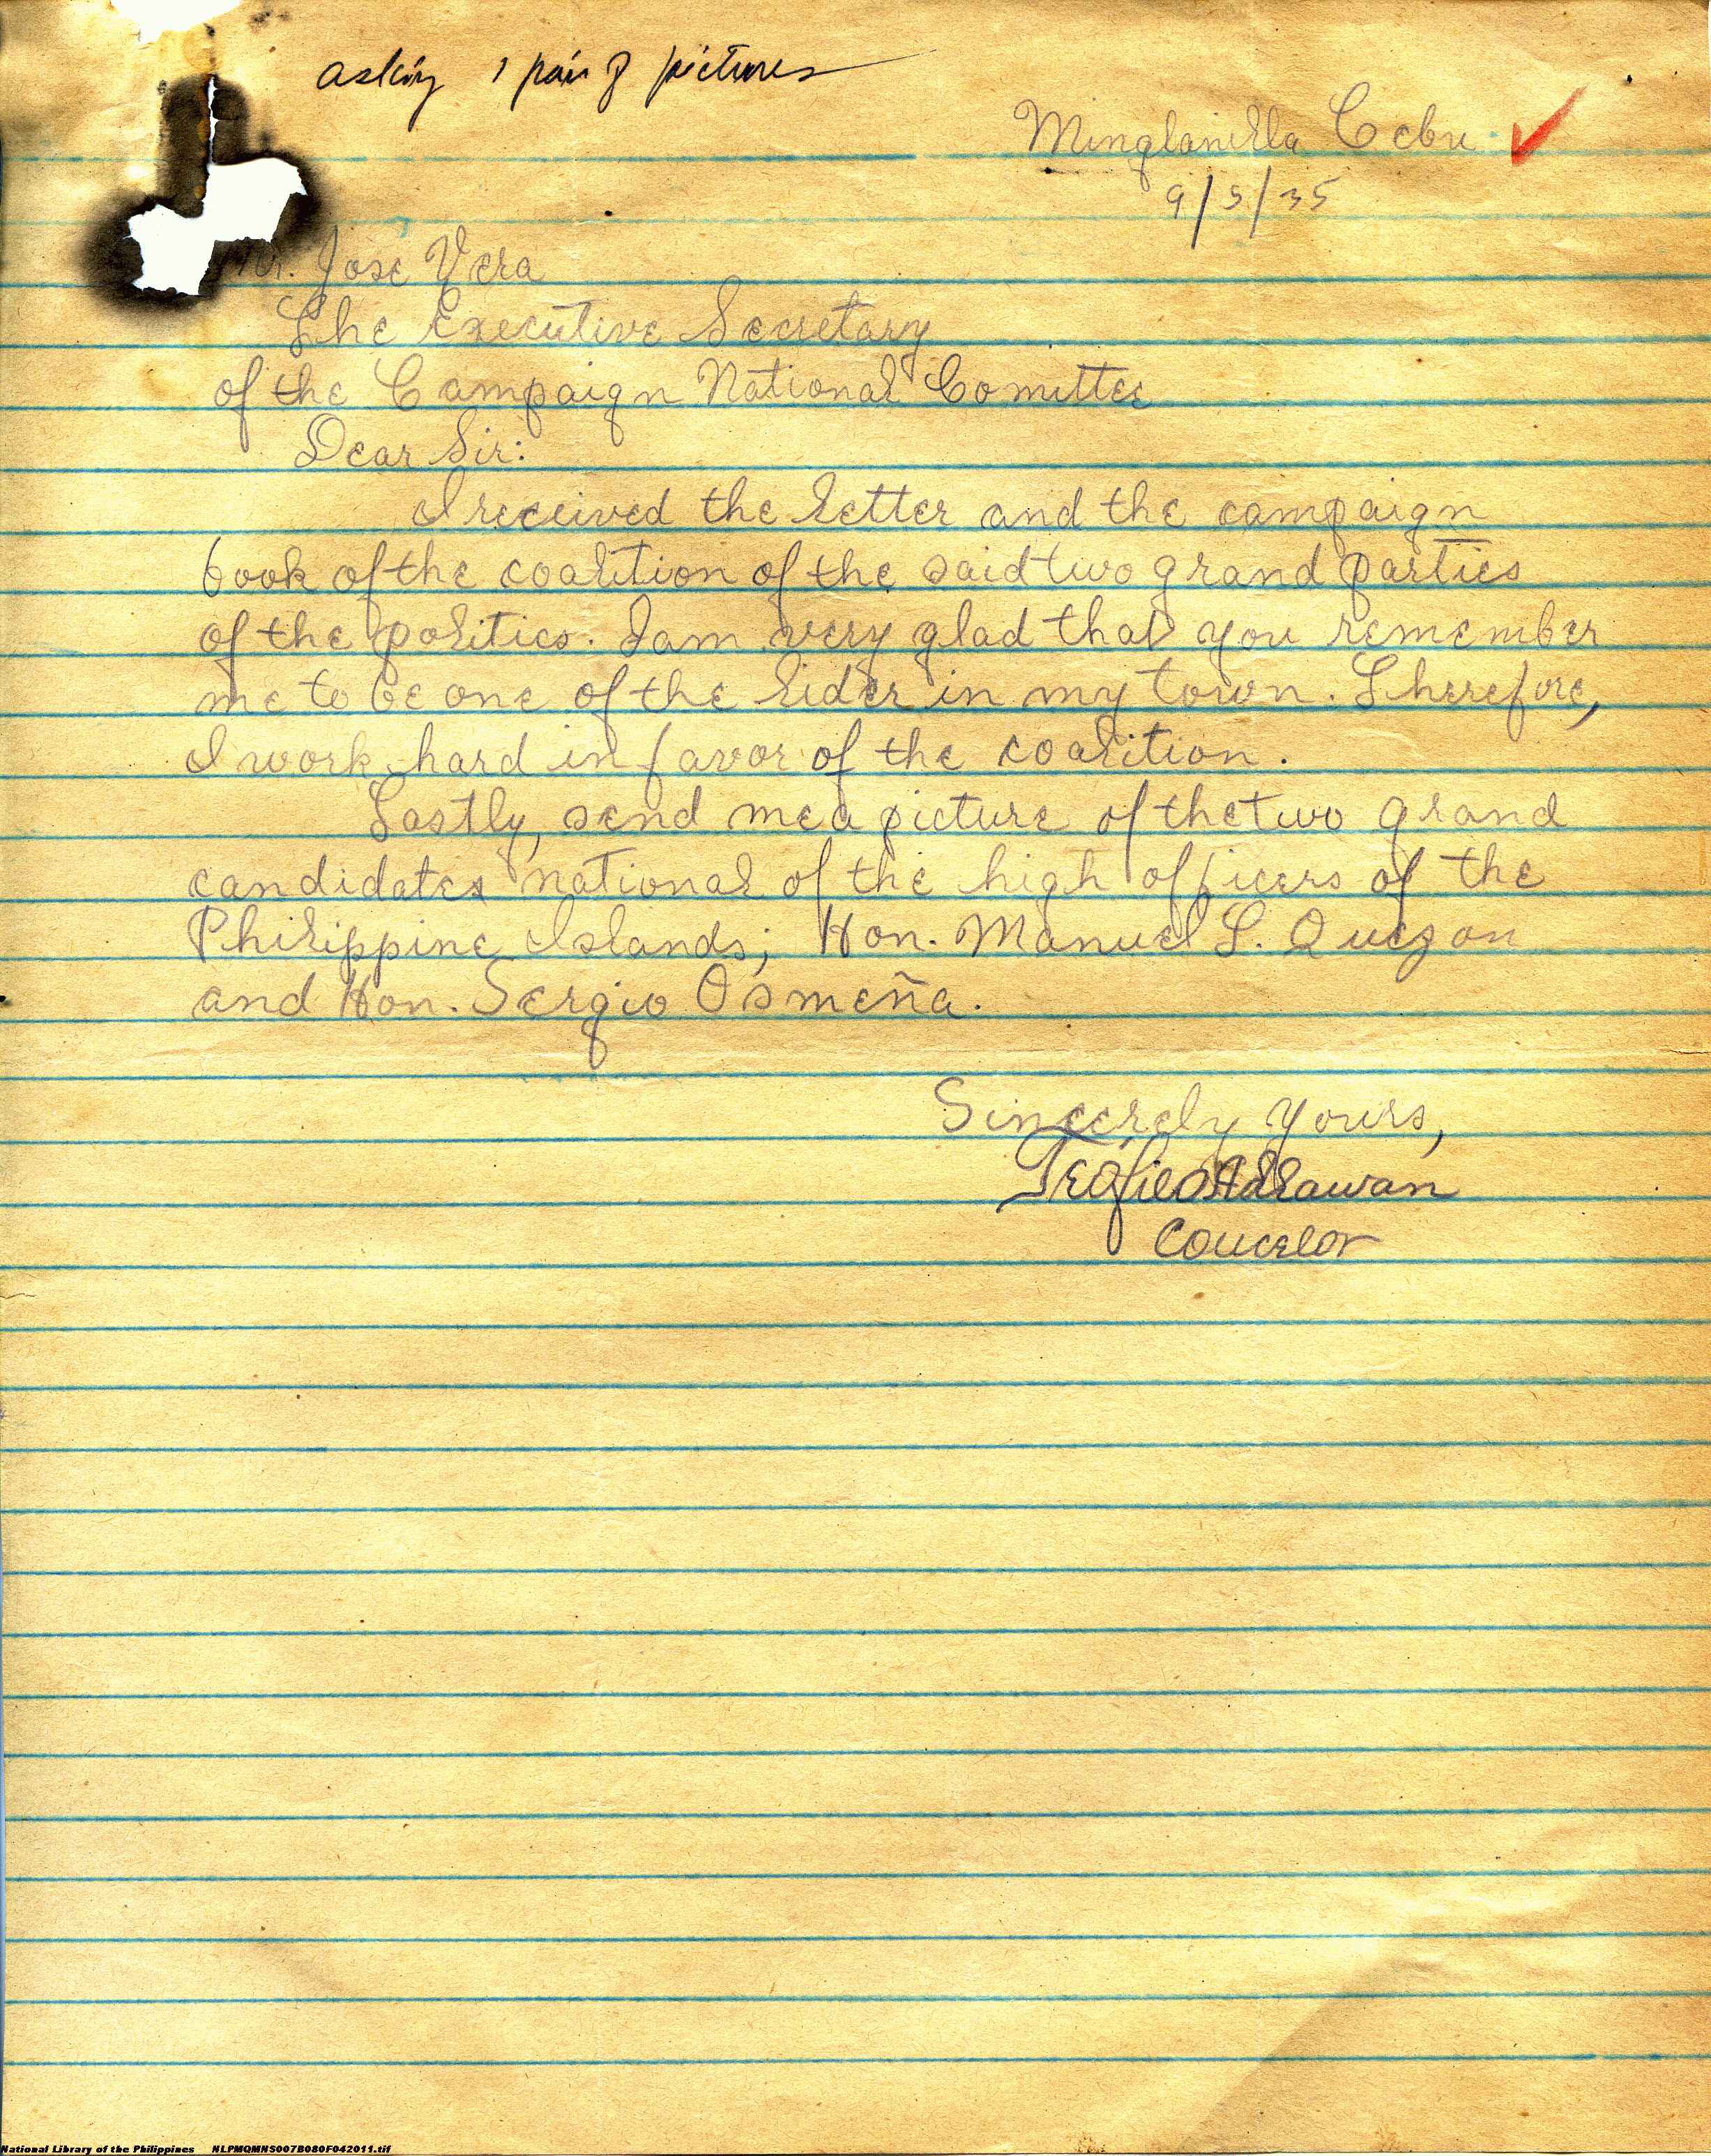 asking 1 pair of pictures
Minglanilla Cebu
9/5/35
Mr. Jose Vera
The Executive Secretary
of the Campaign National Comittee
Dear Sir:
I received the letter and the campaign
book of the coalition of the said two grand parties
of the politics. I am very glad that you remember
me to be one of the lider in my town. Therefore,
I work hard in favor of the coalition.
Lastly, send me a picture of the two grand
candidates national of the high officers of the
Philippine Islands; Hon. Manuel L. Quezon
and Hon. Sergio Osmeña.
Sincerely yours,
Teofilo Adlawan
Coucelor
National Library of the Philippines NLPMQMNS007B080F042011.tif